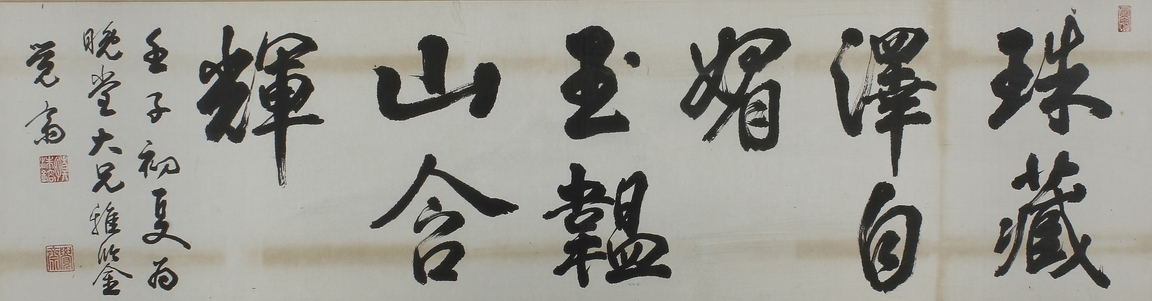 珠藏
澤自
媚
玉韞
山含
輝
壬子初夏為
晚堂大兄雅鑒
覺齋